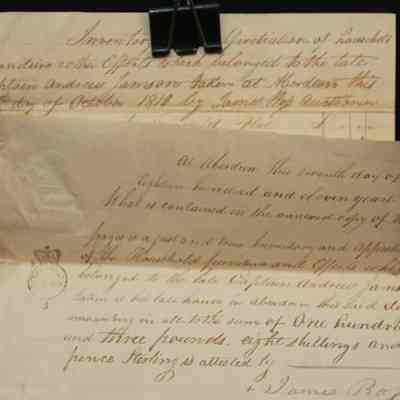 Inventory Appretiation of Household
Furniture & other Effects which belonged to the late
Captain Andrew Jamson taken at Aberdeen this
day of October 1810 by James Auctioneer
At Aberdeen this seventh day of
Eighteen hundred and eleven years
What is contained in the annexed copy of
pages is a just and true Inventory and
of the Household furniture and Effects which
belonged to the late Captain Andrew
taken at his late house in Aberdeen this
amounting in all to the sum of One hundred
and three pounds, eight shillings and
pence Sterling is attested by
James